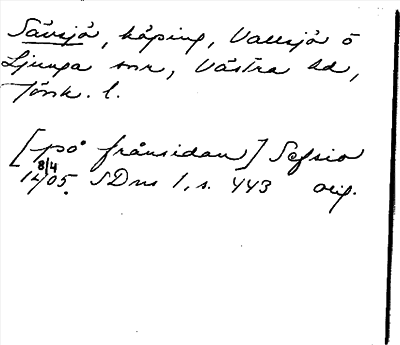 Sävsjö, köping, Vallsjö o
Ljunga snr, Västra hd,
Jönk. l.
[på frånsidan] Sefsio
8/4
1405. SDns 1, s. 443 orig.